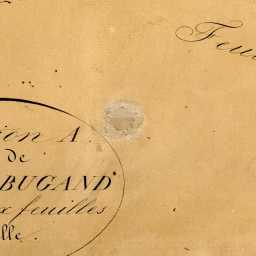 Feu
ion A.
de
BUGAND
x feuilles
lle.